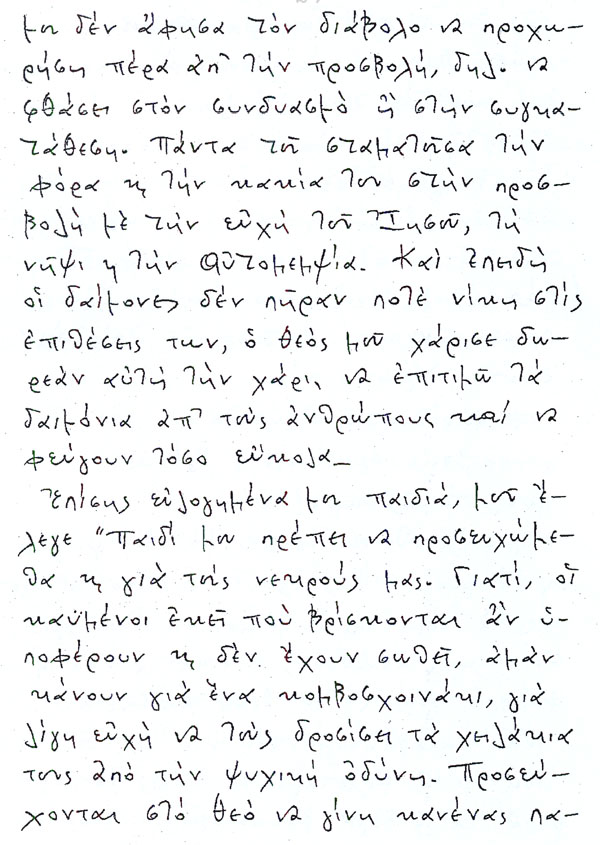 μου δέν ἄφησα τόν διάβολο νά προχω-
ρήση πέρα ἀπ' τήν προσβολή, δηλ. νά
φθάσει στόν συνδυασμό ἤ στήν συγκα-
τάθεση. Πάντα τοῦ σταματοῦσα τήν
φόρα κ τήν κακία του στήν προσ-
βολή μέ τήν εὐχή τοῦ Ἰησοῦ, τή
νῆψι κ τήν αὐτομεμψία. Καί ἐπειδή
οἱ δαίμονες δέν πῆραν ποτέ νίκη στίς
ἐπιθέσεις των, ὁ Θεός μοῦ χάρισε δω-
ρεάν αὐτή τήν χάρι, νά ἐπιτιμῶ τά
δαιμόνια ἀπ' τούς ἀνθρώπους καί νά
φεύγουν τόσο εὔκολα_
Ἐπίσης εὐλογημένα μου παιδιά, μοῦ ἔ-
λεγε "Παιδί μου πρέπει νά προσευχώμε-
θα κ γιά τούς νεκρούς μας. Γιατί, οἱ
καϋμένοι ἐκεῖ πού βρίσκονται ἄν ὑ-
ποφέρουν κ δέν ἔχουν σωθεῖ, ἀμάν
κάνουν γιά ἕνα κομβοσχοινάκι, γιά
λίγη εὐχή νά τούς δροσίσει τά χειλάκια
τους ἀπό τήν ψυχική ὀδύνη. Προσεύ-
χονται στό Θεό νά γίνη κανένας πα-